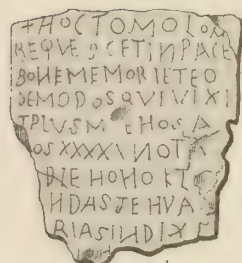 +HOCTOMOLOM
REQVESCETINPACE
BONEMEMORIETEO
DEMODOSQVIVIXI
TPLVSM HOSA
OSXXXXINOT
DIEHOHOKL
HDASJEHVA
RIASINDIX